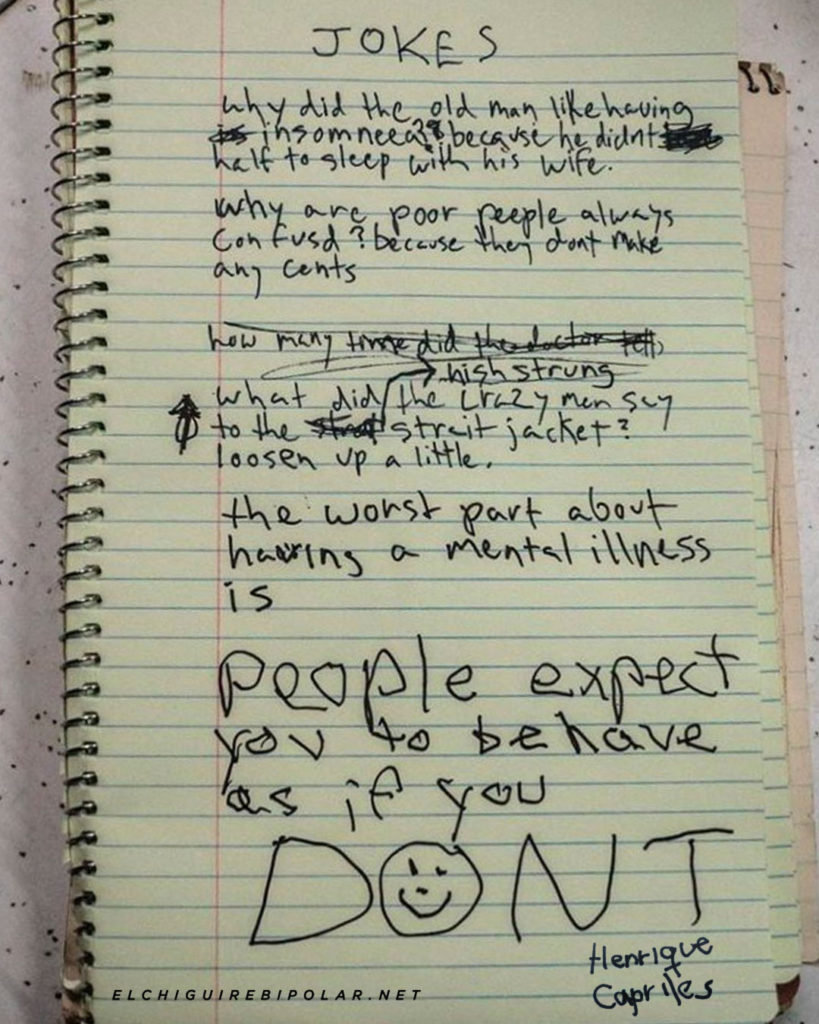 JOKES
why did the old man like having
insomneea?? because he didnt
half to sleep with his wife.
why are poor peeple always
confusd? because they dont make
any cents
how many time did the doctor tell
high strung
what did the crazy man say
to the strait jacket?
loosen up a little.
the worst part about
having a mental illness
is
people expect
you to behave
as if you
DONT
Henrique
Capriles
ELCHIGUIREBIPOLAR.NET